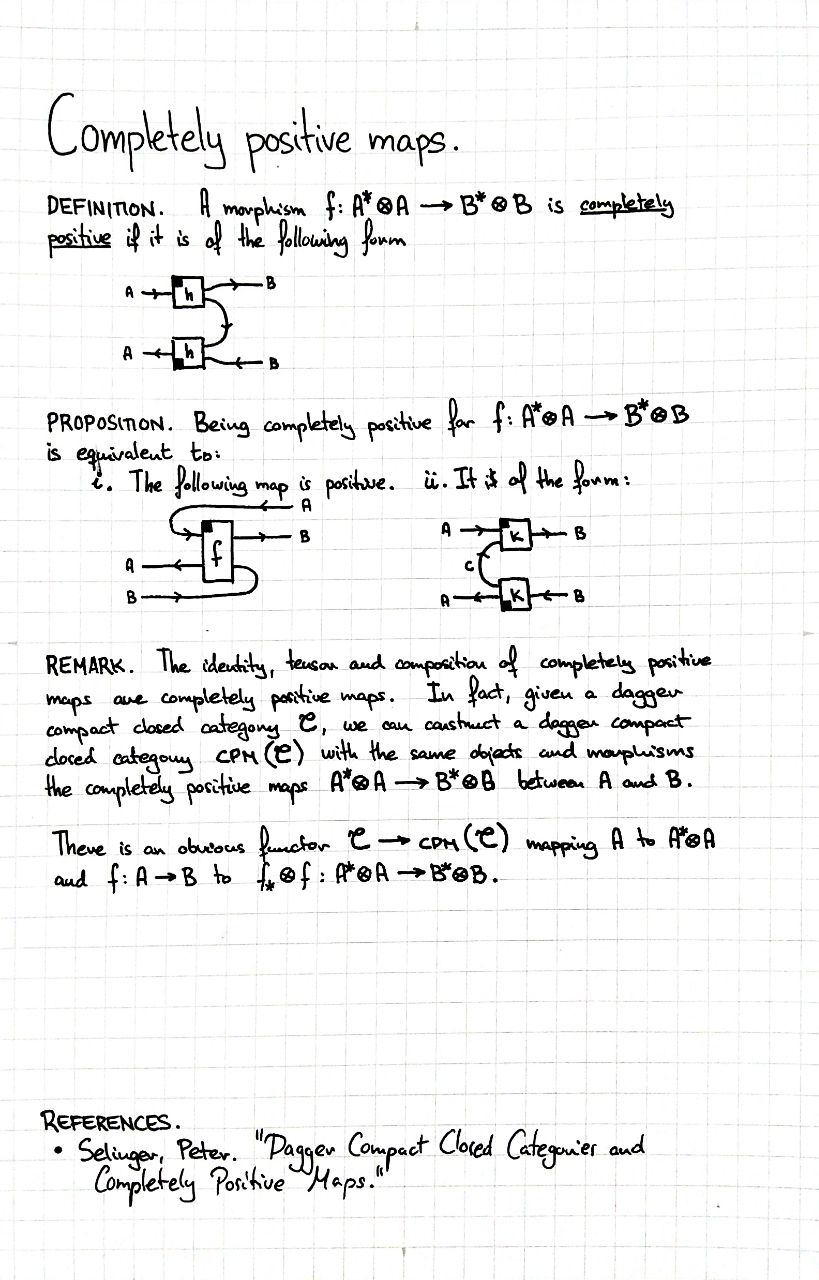 Completely positive maps.
DEFINITION. A morphism f: A*⊗A → B*⊗B is completely
positive if it is of the following form
A h B
A h B
PROPOSITION. Being completely positive for f: A*⊗A → B*⊗B
is equivalent to:
i. The following map is positive. ii. It is of the form:
A
B
f
A
B
A k B
C
A k B
REMARK. The identity, tensor and composition of completely positive
maps are completely positive maps. In fact, given a dagger
compact closed category C, we can construct a dagger compact
closed category CPM(C) with the same objects and morphisms
the completely positive maps A*⊗A → B*⊗B between A and B.
There is an obvious functor C → CPM(C) mapping A to A*⊗A
and f: A → B to f_*⊗f : A*⊗A → B*⊗B.
REFERENCES.
• Selinger, Peter. "Dagger Compact Closed Categories and
Completely Positive Maps."